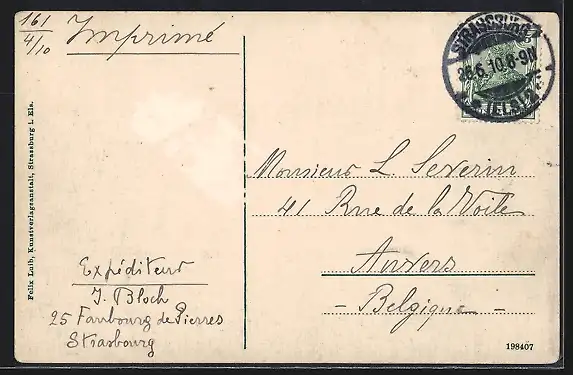 161
4/10
Imprimé
STRASSBURG
26.6.10.8-9N
(ELS.)2
Monsieur L Severin
41 Rue de la Voile
Anvers
- Belgique -
Expéditeur
J. Bloch
25 Faubourg de Pierres
Strasbourg
Felix Luib, Kunstverlagsanstalt, Strassburg i. Els.
198407